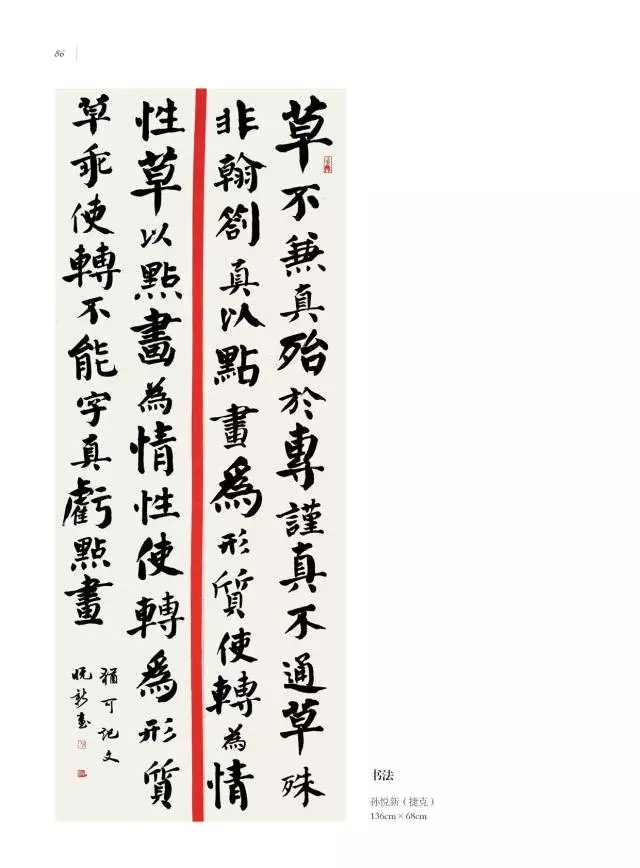 86
草不兼真殆於專謹真不通草殊
非翰劄真以點畫爲形質使轉為情
性草以點畫為情性使轉爲形質
草乖使轉不能字真虧點畫
猶可記文
悦新書
书法
孙悦新（捷克）
136cm×68cm